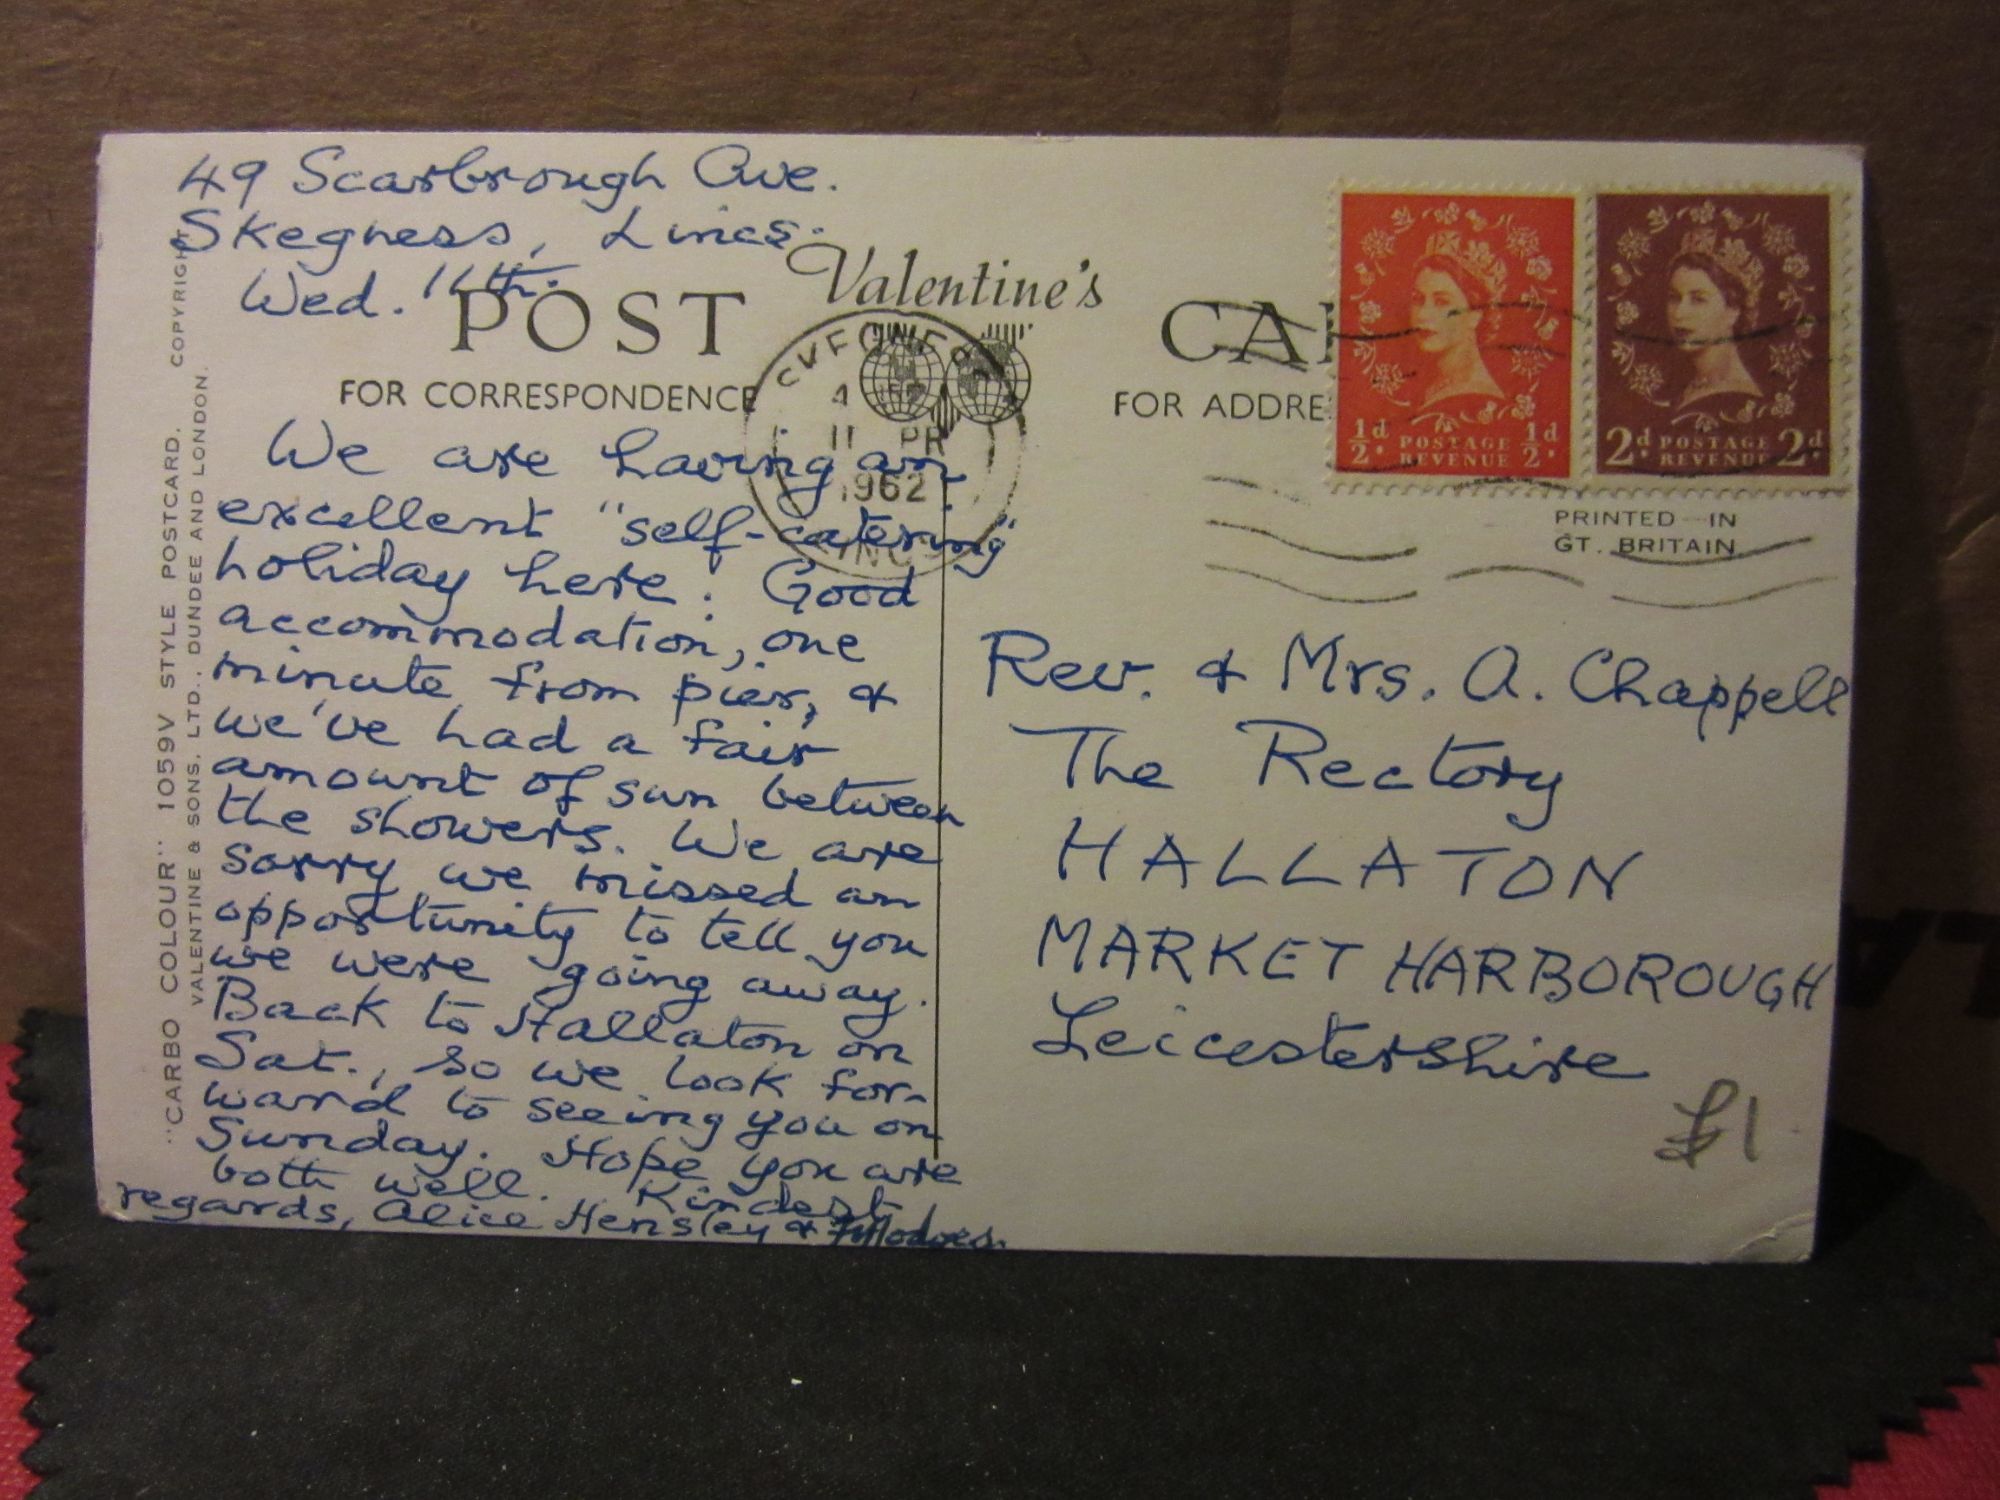 49 Scarbrough Ave.
Skegness, Lincs.
Wed. 11th.
Valentine's
POST CA
FOR CORRESPONDENCE
FOR ADDRE
SKEGNESS
4
11 APR
1962
LINCS
½d POSTAGE REVENUE ½d
2d POSTAGE REVENUE 2d
PRINTED IN
GT. BRITAIN
We are having an
excellent "self-catering"
holiday here. Good
accommodation, one
minute from pier, &
we've had a fair
amount of sun between
the showers. We are
sorry we missed an
opportunity to tell you
we were going away.
Back to Hallaton on
Sat., so we look for-
ward to seeing you on
Sunday. Hope you are
both well. Kindest
regards, Alice Hensley &
Rev. & Mrs. A. Chappell
The Rectory
HALLATON
MARKET HARBOROUGH
Leicestershire
£1
"CARBO COLOUR" 1059V STYLE POSTCARD. COPYRIGHT
VALENTINE & SONS, LTD., DUNDEE AND LONDON.